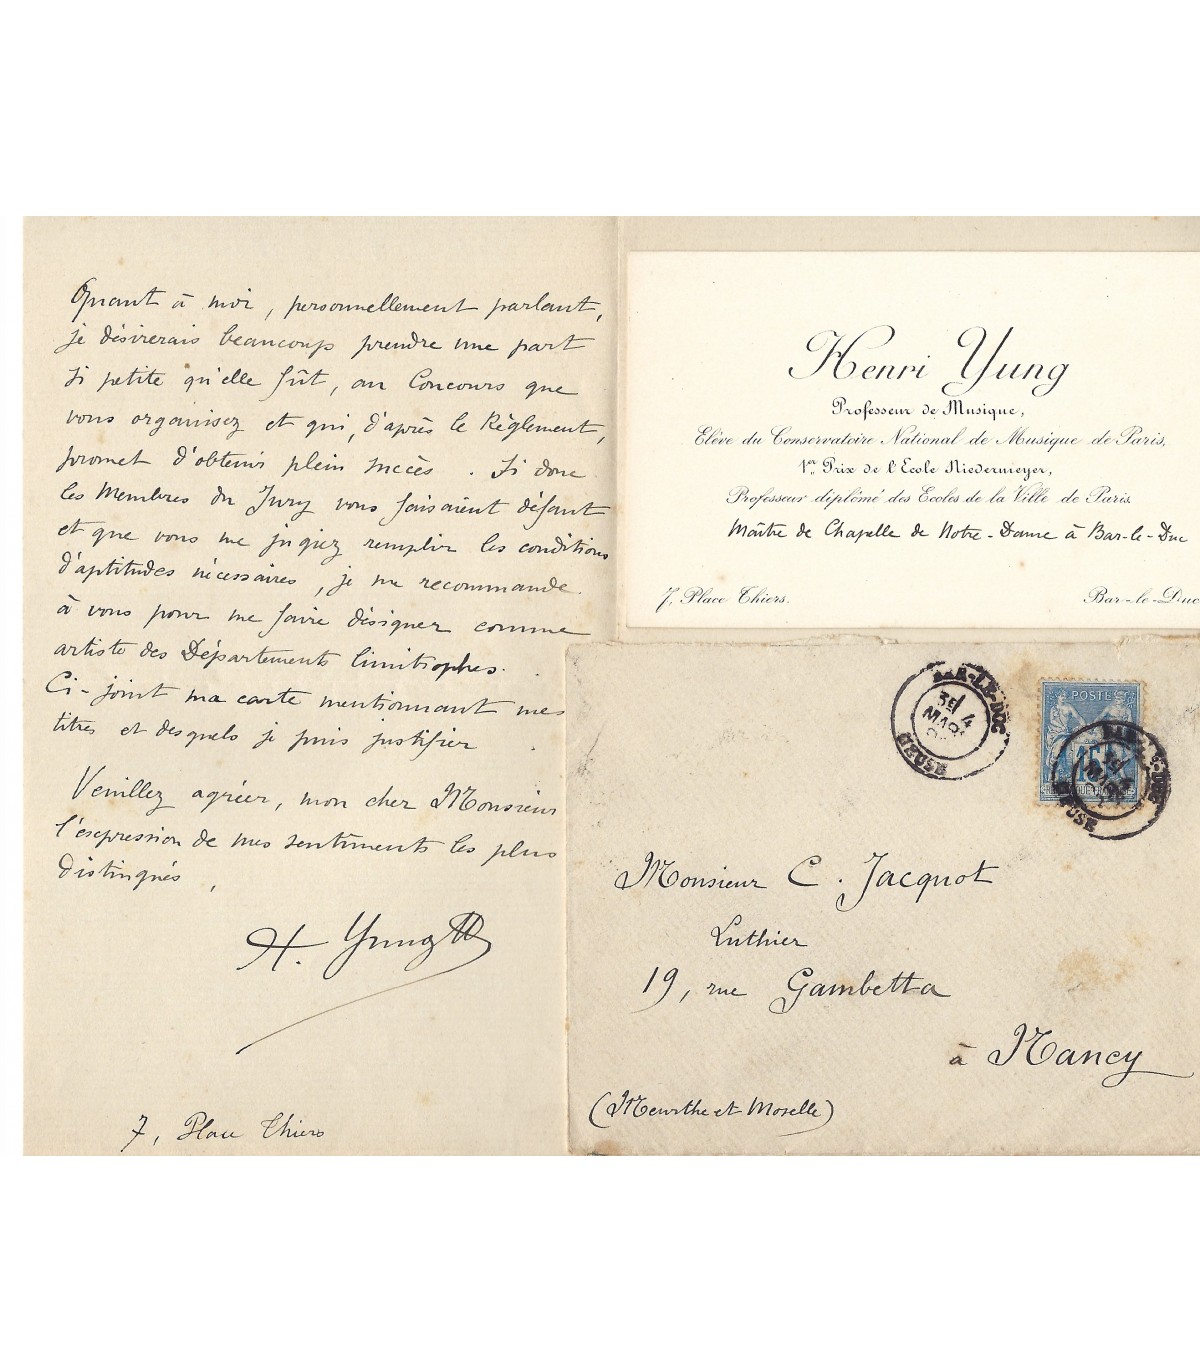 Quant à moi, personnellement parlant,
je désirerais beaucoup prendre une part
si petite qu'elle fût, au Concours que
vous organisez et qui, d'après le Règlement,
promet d'obtenir plein succès. Si donc
les Membres du Jury vous faisaient défaut
et que vous me jugiez remplir les conditions
d'aptitudes nécessaires, je me recommande
à vous pour me faire désigner comme
artiste des Départements limitrophes.
Ci-joint ma carte mentionnant mes
titres et desquels je puis justifier.
Veuillez agréer, mon cher Monsieur
l'expression de mes sentiments les plus
distingués,
H. Yung
7, Place Thiers
Henri Yung
Professeur de Musique,
Elève du Conservatoire National de Musique de Paris,
1er Prix de l'Ecole Niedermeyer,
Professeur diplômé des Ecoles de la Ville de Paris
Maître de Chapelle de Notre-Dame à Bar-le-Duc
7, Place Thiers. Bar-le-Duc
BAR-LE-DUC
3E/ 4
MARS
MEUSE
POSTE
15
BAR-LE-DUC
MEUSE
Monsieur C. Jacquot
Luthier
19, rue Gambetta
à Nancy
(Meurthe et Moselle)